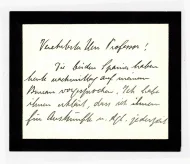 Verehrter Herr Professor!
Die beiden Spanier haben
heute nachmittag auf meinem
Bureau vorgesprochen. Ich habe
ihnen erklärt, dass ich ihnen
für Auskünfte u. dgl. jederzeit